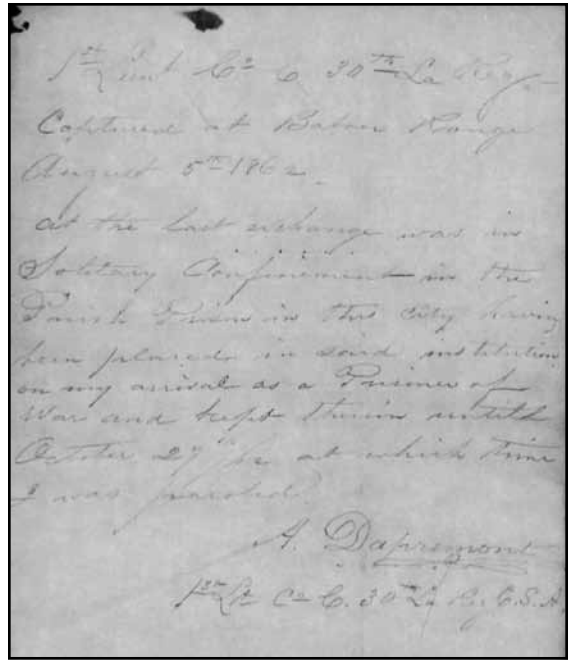 1st Lieut Co C 30th La Reg.
Captured at Baton Rouge
August 5th 1862.
at the last exchange was in
Solitary Confinement in the
Parish Prison in this City having
been placed in said institution
on my arrival as a Prisoner of
War and kept therein untill
October 27th at which time
I was paroled.
A. Dapremont
1st Lt Co C. 30th La Reg C.S.A.